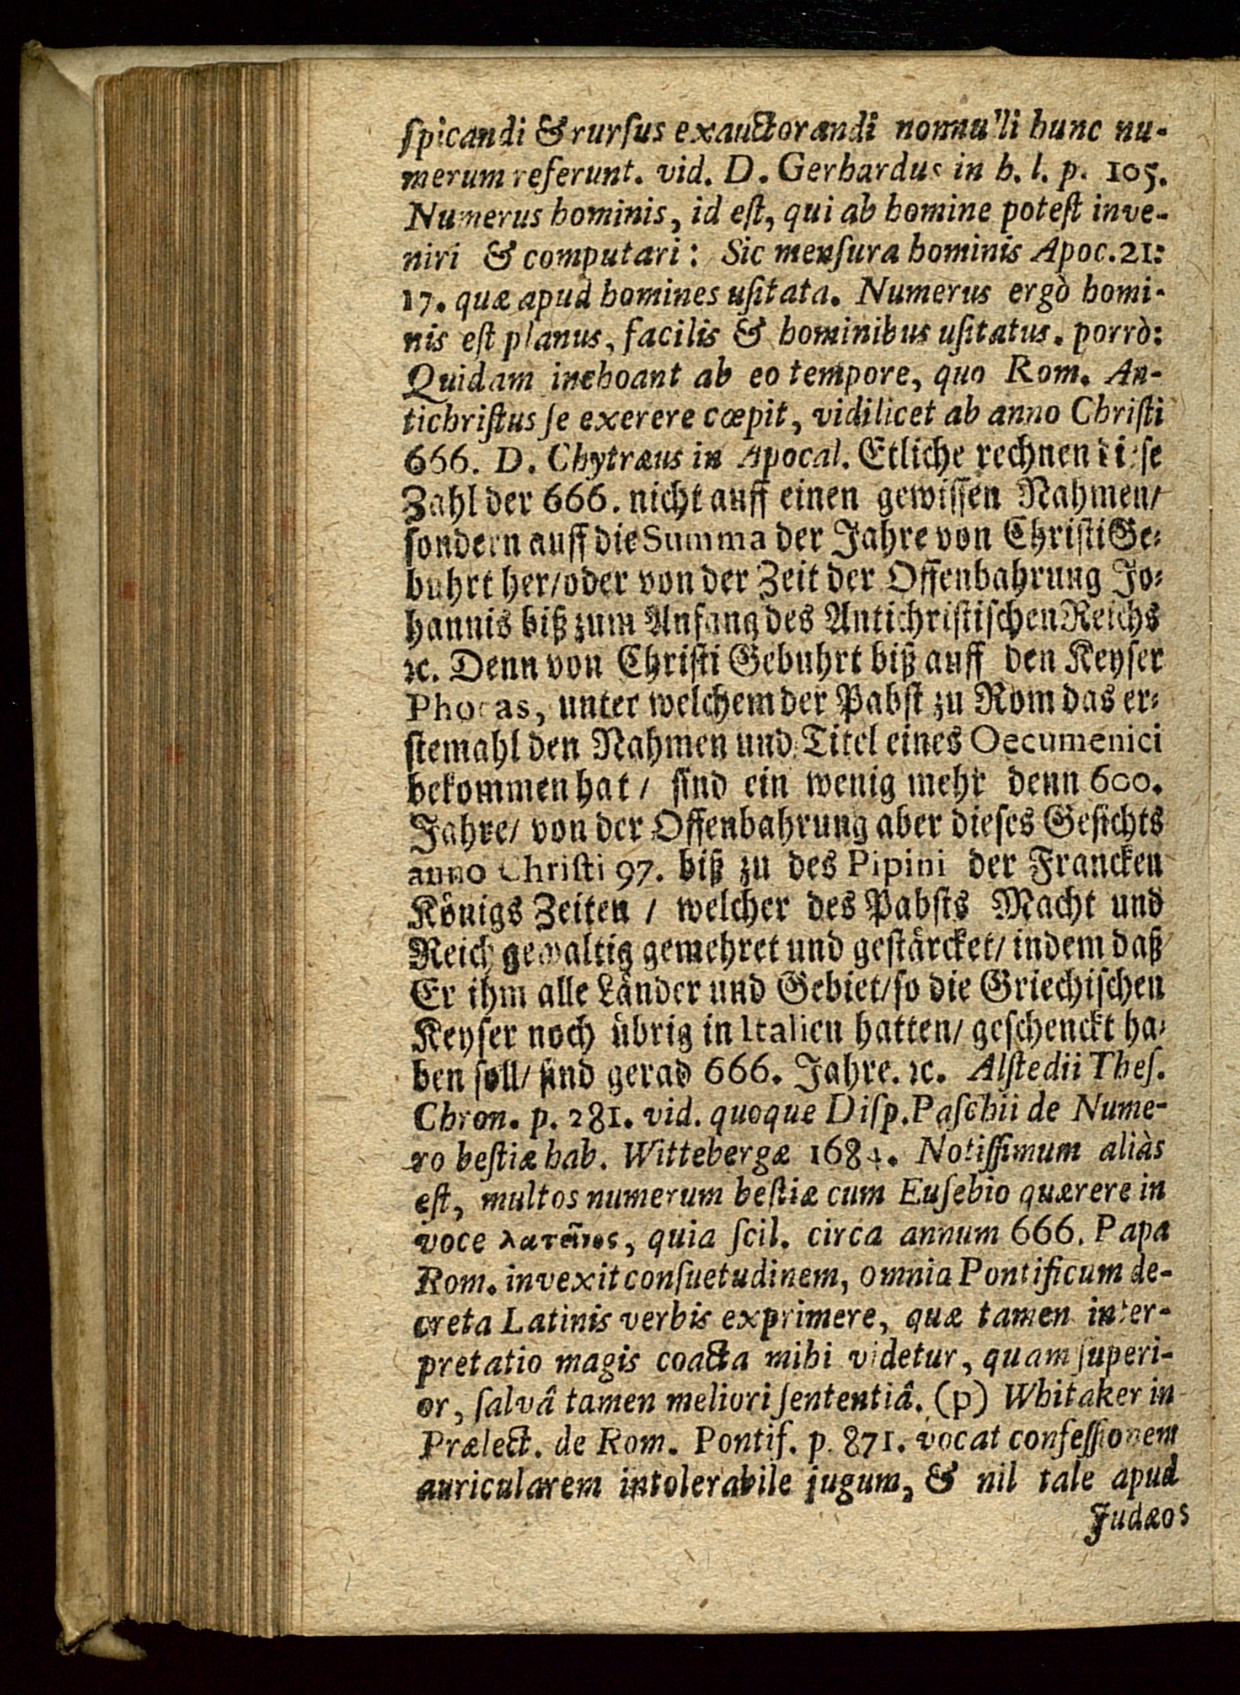 ſpicandi & rurſus exauctorandi nonnulli hunc nu-
merum referunt. vid. D. Gerhardus in h. l. p. 105.
Numerus hominis, id eſt, qui ab homine poteſt inve-
niri & computari: Sic menſura hominis Apoc. 21:
17. quæ apud homines uſitata. Numerus ergò homi-
nis eſt planus, facilis & hominibus uſitatus. porrò:
Quidam inchoant ab eo tempore, quo Rom. An-
tichriſtus ſe exerere cœpit, vidilicet ab anno Chriſti
666. D. Chytræus in Apocal. Etliche rechnen dieſe
Zahl der 666. nicht auff einen gewiſſen Nahmen/
ſondern auff die Summa der Jahre von Chriſti Ge-
buhrt her/ oder von der Zeit der Offenbahrung Jo-
hannis biß zum Anfang des Antichriſtiſchen Reichs
ꝛc. Denn von Chriſti Gebuhrt biß auff den Keyſer
Phocas, unter welchem der Pabſt zu Rom das er-
ſtemahl den Nahmen und Titel eines Oecumenici
bekommen hat / ſind ein wenig mehr denn 600.
Jahre/ von der Offenbahrung aber dieſes Geſichts
anno Chriſti 97. biß zu des Pipini der Francken
Königs Zeiten / welcher des Pabſts Macht und
Reich gewaltig gemehret und geſtärcket/ indem daß
Er ihm alle Länder und Gebiet/ ſo die Griechiſchen
Keyſer noch übrig in Italien hatten/ geſchenckt ha-
ben ſoll/ ſind gerad 666. Jahre. ꝛc. Alſtedii Theſ.
Chron. p. 281. vid. quoque Diſp. Paſchii de Nume-
ro beſtiæ hab. Wittebergæ 1684. Notiſſimum aliàs
eſt, multos numerum beſtiæ cum Euſebio quærere in
voce λατεῖνος, quia ſcil. circa annum 666. Papa
Rom. invexit conſuetudinem, omnia Pontificum de-
creta Latinis verbis exprimere, quæ tamen inter-
pretatio magis coacta mihi videtur, quam ſuperi-
or, ſalvâ tamen meliori ſententiâ. (p) Whitaker in
Prælect. de Rom. Pontif. p. 871. vocat confeſſionem
auricularem intolerabile jugum, & nil tale apud
Judæos